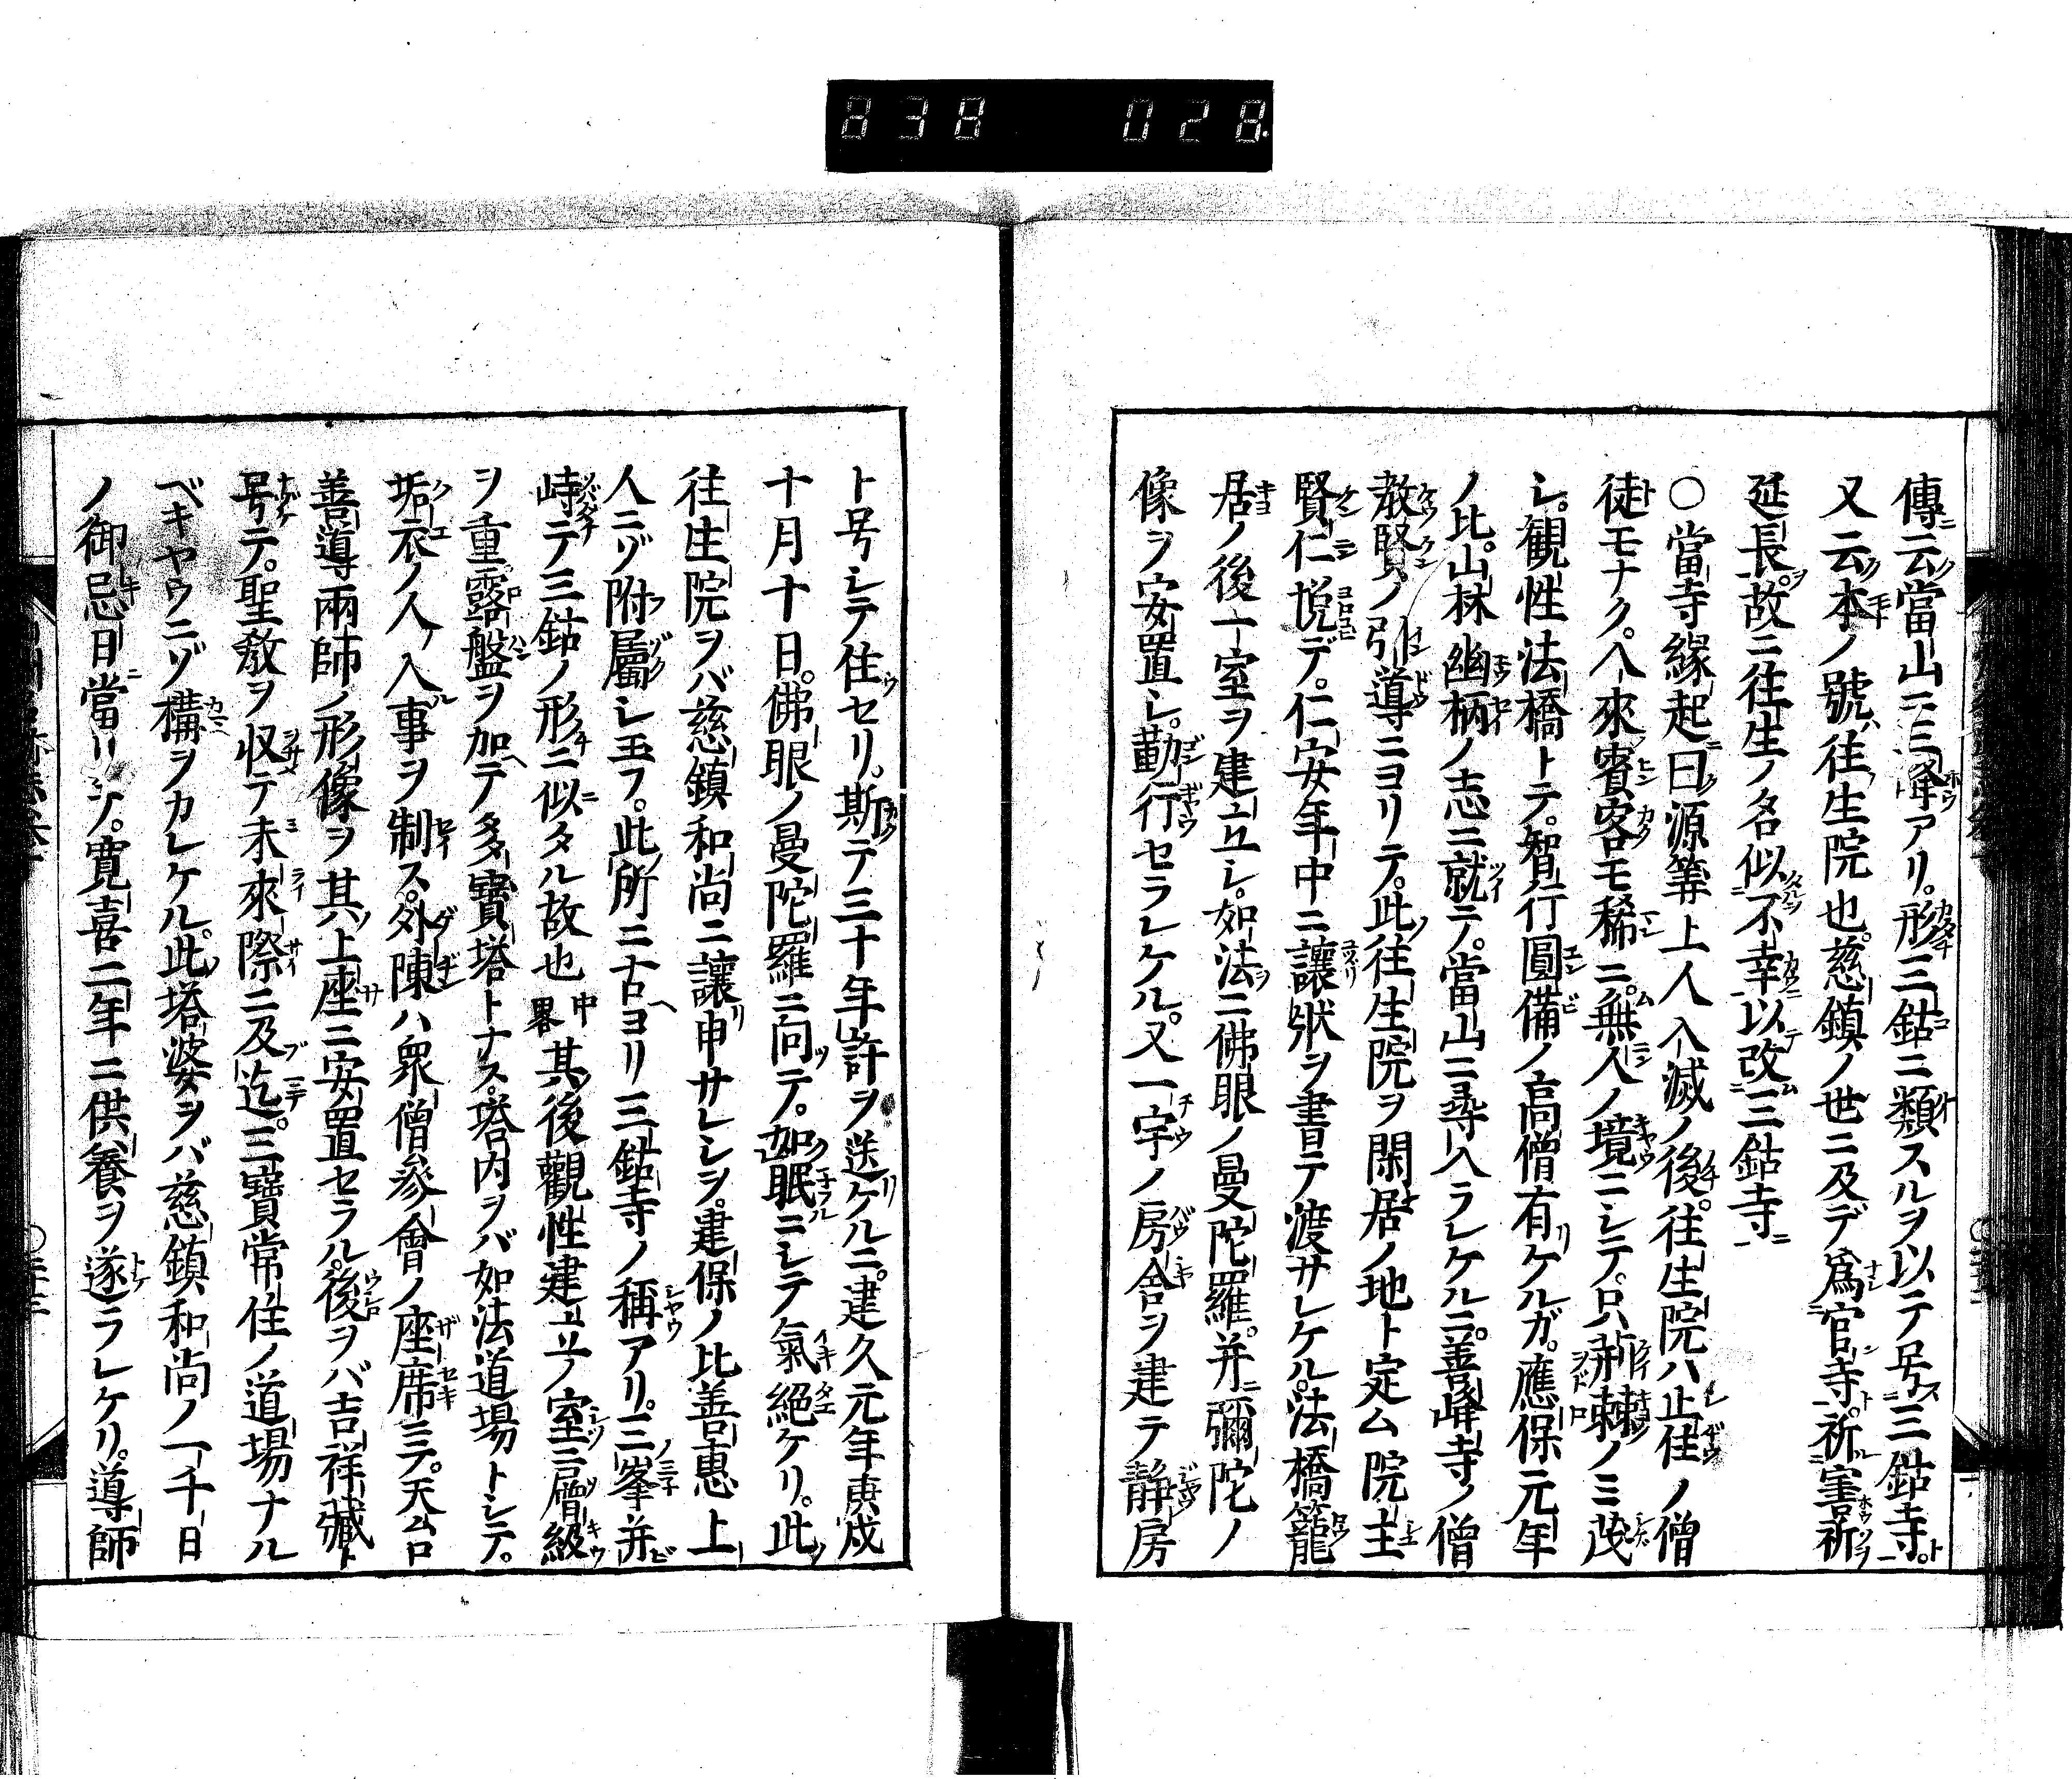 838 028
傳云當山ニ三峰アリ。形三鈷ニ類スルヲ以テ号三鈷寺。
又云本ノ號往生院也。慈鎮ノ世ニ及デ爲官寺。祈害祈
延長。故ニ往生ノ名似不幸以改三鈷寺
○當寺縁起曰源筭上人入滅ノ後。往生院ハ止住ノ僧
徒モナク。入來賓客モ稀ニ。無人ノ境ニシテ。只荊棘ノミ茂
シ。観性法橋トテ。智行圓備ノ高僧有ケルガ。應保元年
ノ比。山林幽栖ノ志ニ就テ。當山ニ尋入ラレケルニ。善峰寺ノ僧
教賢ノ引導ニヨリテ。此往生院ヲ閑居ノ地ト定ム院主
賢仁悦デ。仁安年中ニ讓狀ヲ書テ渡サレケル。法橋籠
居ノ後一室ヲ建立シ。如法ニ佛眼ノ曼陀羅。并彌陀ノ
像ヲ安置シ。勤行セラレケル。又一宇ノ房舎ヲ建テ靜房
ト号シテ住セリ。斯テ三十年許ヲ送ケルニ。建久元年庚戌
十月十日。佛眼ノ曼陀羅ニ向テ。如眠ニシテ氣絶ケリ。此
往生院ヲバ慈鎮和尚ニ讓申サレシヲ。建保ノ比善惠上
人ニゾ附屬シ玉フ。此所ニ古ヨリ三鈷寺ノ稱アリ。三峯并
峙テ三鈷ノ形ニ似タル故也中畧其後觀性建立ノ室三層級
ヲ重露盤ヲ加テ多寶塔トナス。塔内ヲバ如法道場トシテ。
垢衣ノ人入事ヲ制ス。外陳ハ衆僧參會ノ座席ニテ。天ムロ
善導兩師ノ形像ヲ其上座ニ安置セラル。後ヲバ吉祥藏ト
号テ。聖教ヲ収テ未來際ニ及迄。三寶常住ノ道場ナル
ベキヤウニゾ構ヲカレケル。此塔婆ヲバ慈鎮和尚ノ一千日
ノ御忌日當リテ。寛喜二年ニ供養ヲ遂ラレケリ。導師